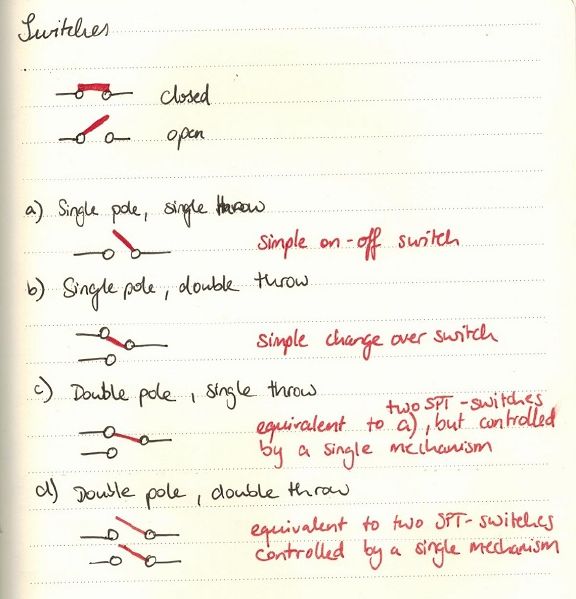 Switches
closed
open
a) Single pole, single throw
simple on-off switch
b) Single pole, double throw
simple change over switch
c) Double pole, single throw
two SPT-switches
equivalent to a), but controlled
by a single mechanism
d) Double pole, double throw
equivalent to two SPT-switches
controlled by a single mechanism